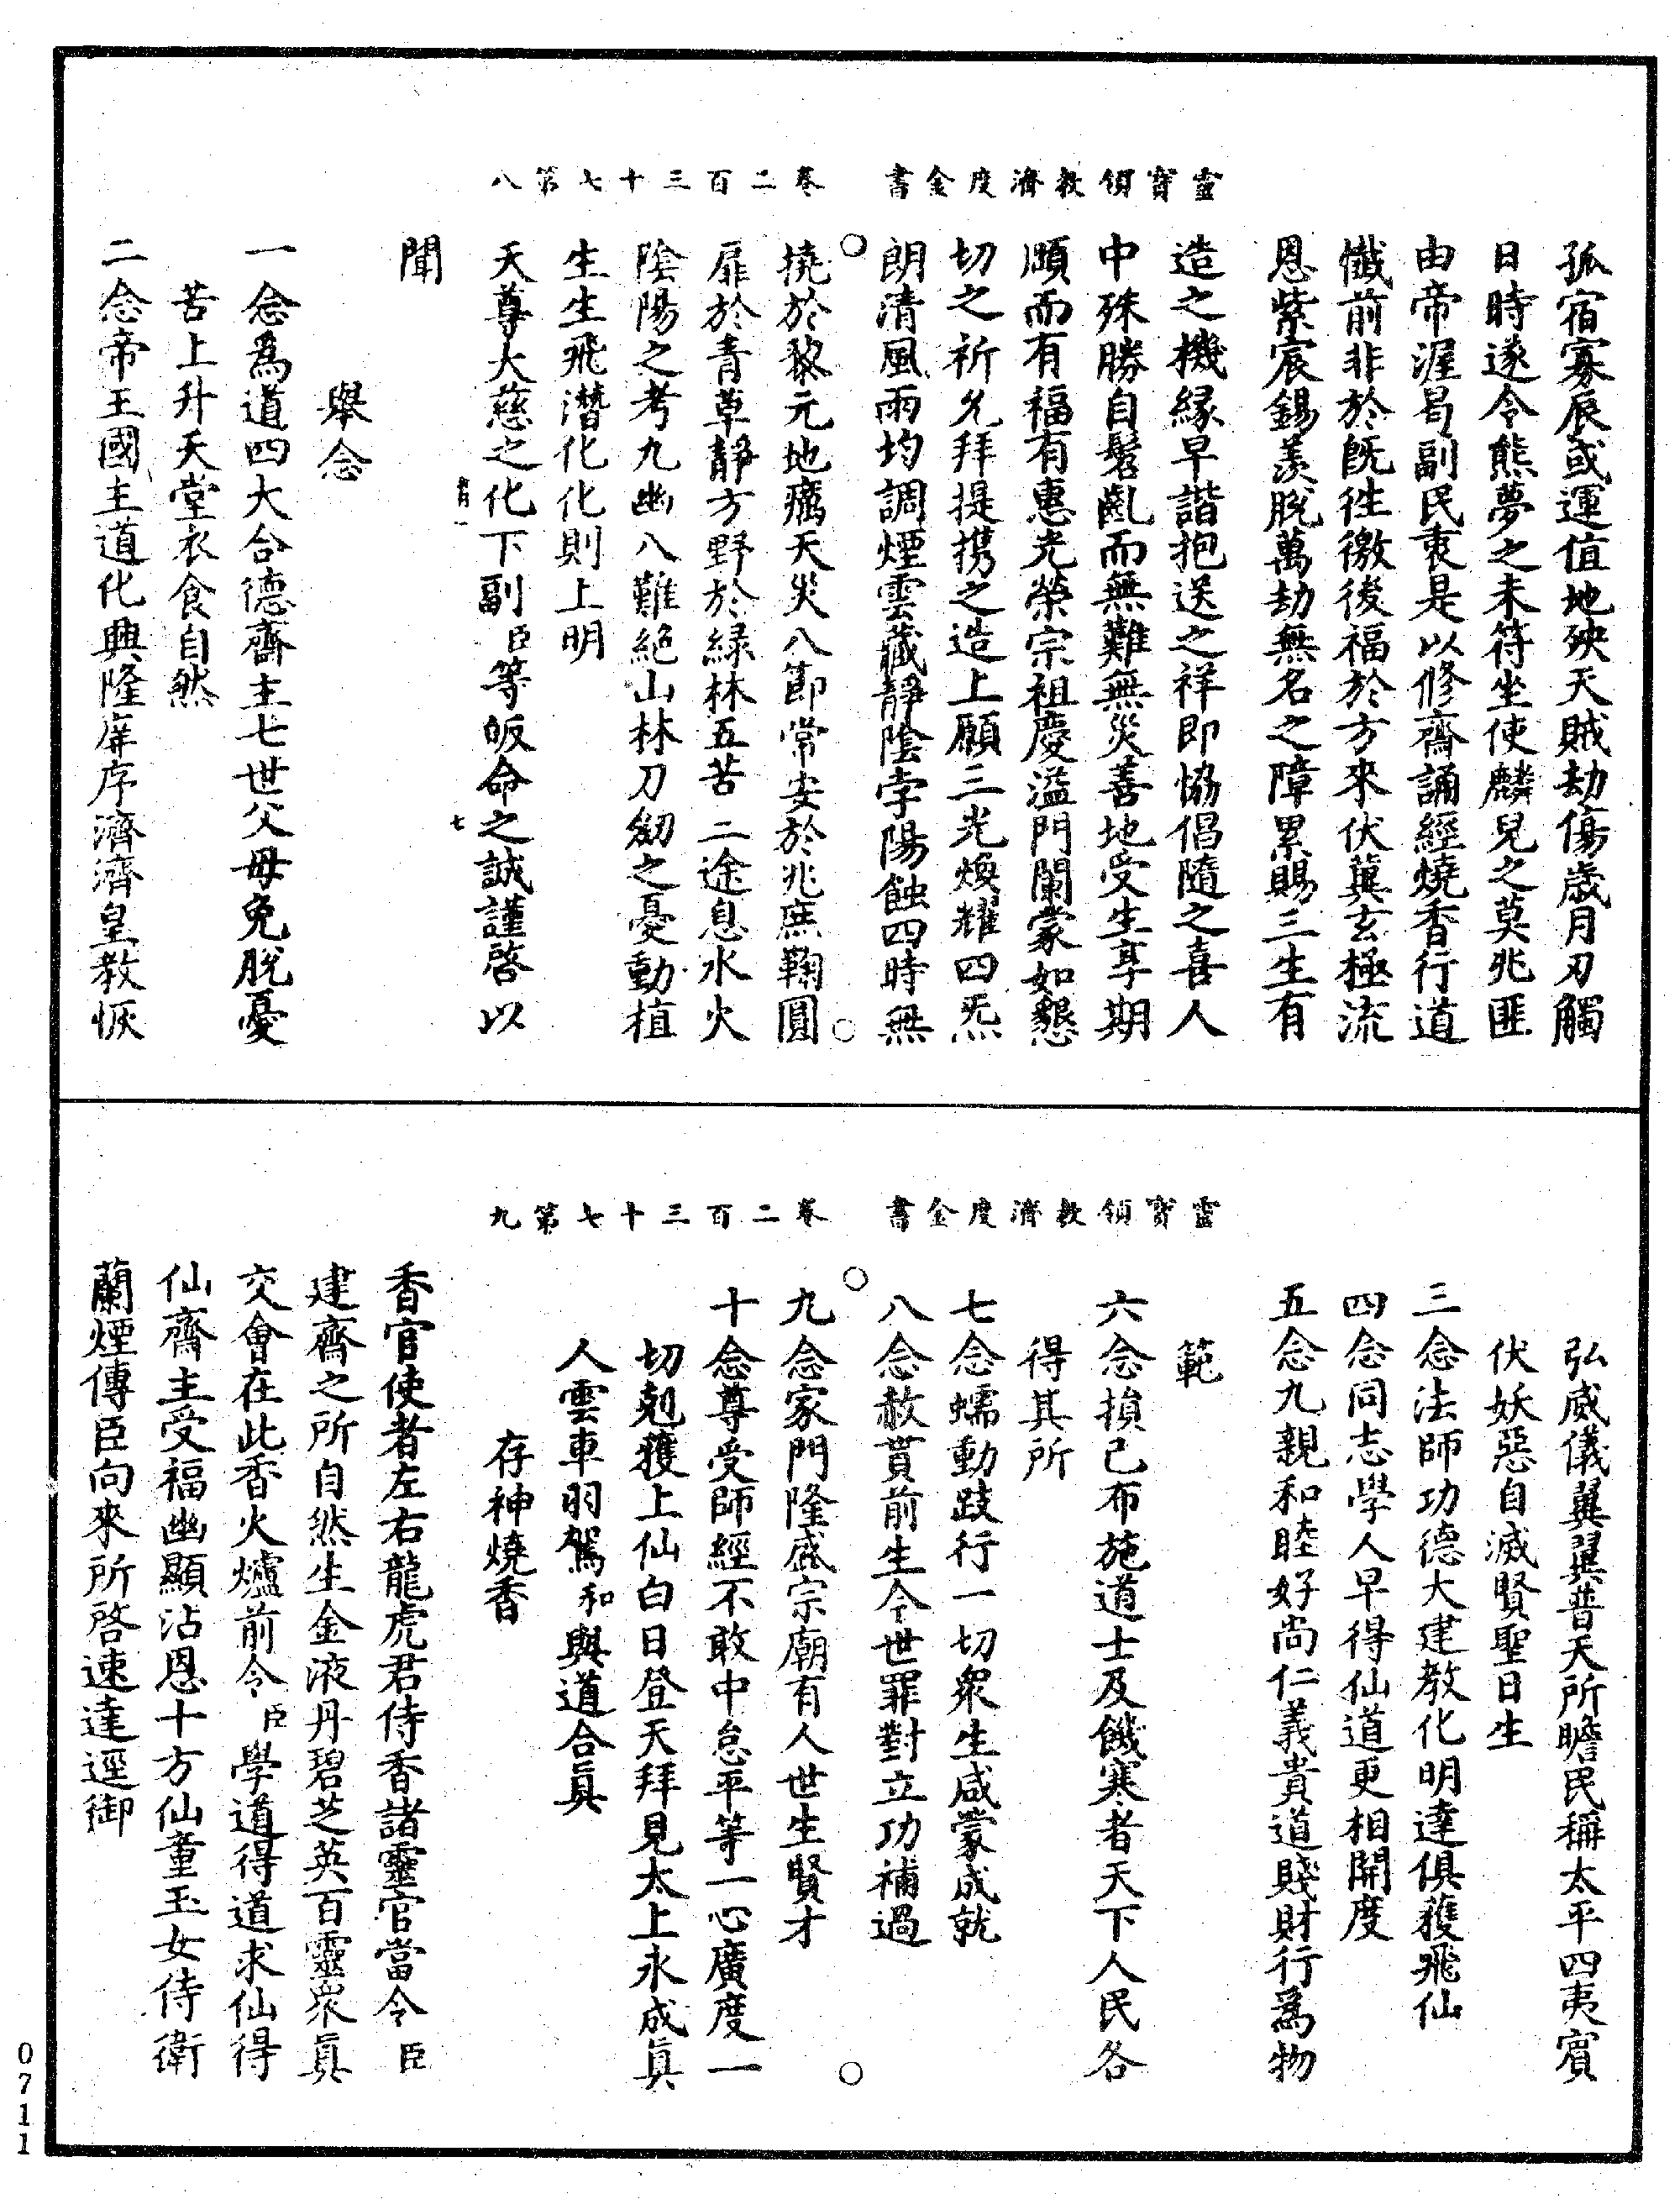 靈寶領教濟度金書　卷二百三十七第八
孤宿寡辰或運值地殃天賊劫傷歲月刃觸
日時遂令熊夢之未符坐使麟兒之莫兆匪
由帝渥曷副民衷是以修齋誦經燒香行道
懺前非於既徃徼後福於方來伏冀玄極流
恩紫宸錫羨脫萬劫無名之障累賜三生有
造之機緣早諧抱送之祥即恊倡隨之喜人
中殊勝自髫齔而無難無災善地受生享期
頤而有福有惠光榮宗祖慶溢門闌蒙如懇
切之祈允拜提携之造上願三光煥耀四炁
朗清風雨均調煙雲藏靜陰孛陽蝕四時無
撓於黎元地癘天災八節常安於兆庶鞠圓
扉於青草靜方野於綠林五苦二途息水火
陰陽之考九幽八難絕山林刀劒之憂動植
生生飛潛化化則上明
天尊大慈之化下副臣等皈命之誠謹啓以
七
聞
舉念
一念爲道四大合德齋主七世父母免脫憂
苦上升天堂衣食自然
二念帝王國主道化興隆庠序濟濟皇教恢
靈寶領教濟度金書　卷二百三十七第九
弘威儀翼翼普天所瞻民稱太平四夷賓
伏妖惡自滅賢聖日生
三念法師功德大建教化明達俱獲飛仙
四念同志學人早得仙道更相開度
五念九親和睦好尚仁義貴道賤財行爲物
範
六念損己布施道士及饑寒者天下人民各
得其所
七念蠕動跂行一切衆生咸蒙成就
八念赦貰前生今世罪對立功補過
九念家門隆盛宗廟有人世生賢才
十念尊受師經不敢中怠平等一心廣度一
切剋獲上仙白日登天拜見太上永成眞
人雲車羽駕和與道合眞
存神燒香
香官使者左右龍虎君侍香諸靈官當令臣
建齋之所自然生金液丹碧芝英百靈衆眞
交會在此香火爐前令臣學道得道求仙得
仙齋主受福幽顯沾恩十方仙童玉女侍衛
蘭煙傳臣向來所啓速達逕御
0711